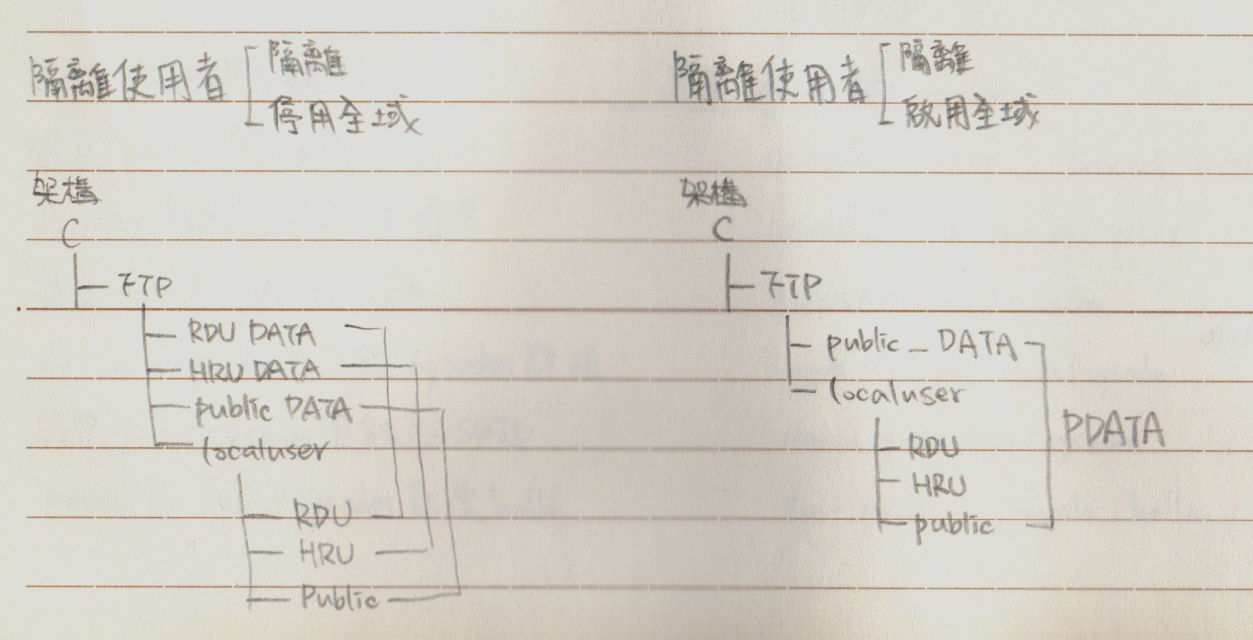 隔離使用者 隔離
停用全域
架構
C
FTP
RDU DATA
HRU DATA
public DATA
localuser
RDU
HRU
Public
隔離使用者 隔離
啟用全域
架構
C
FTP
public_DATA
localuser
PDATA
RDU
HRU
public